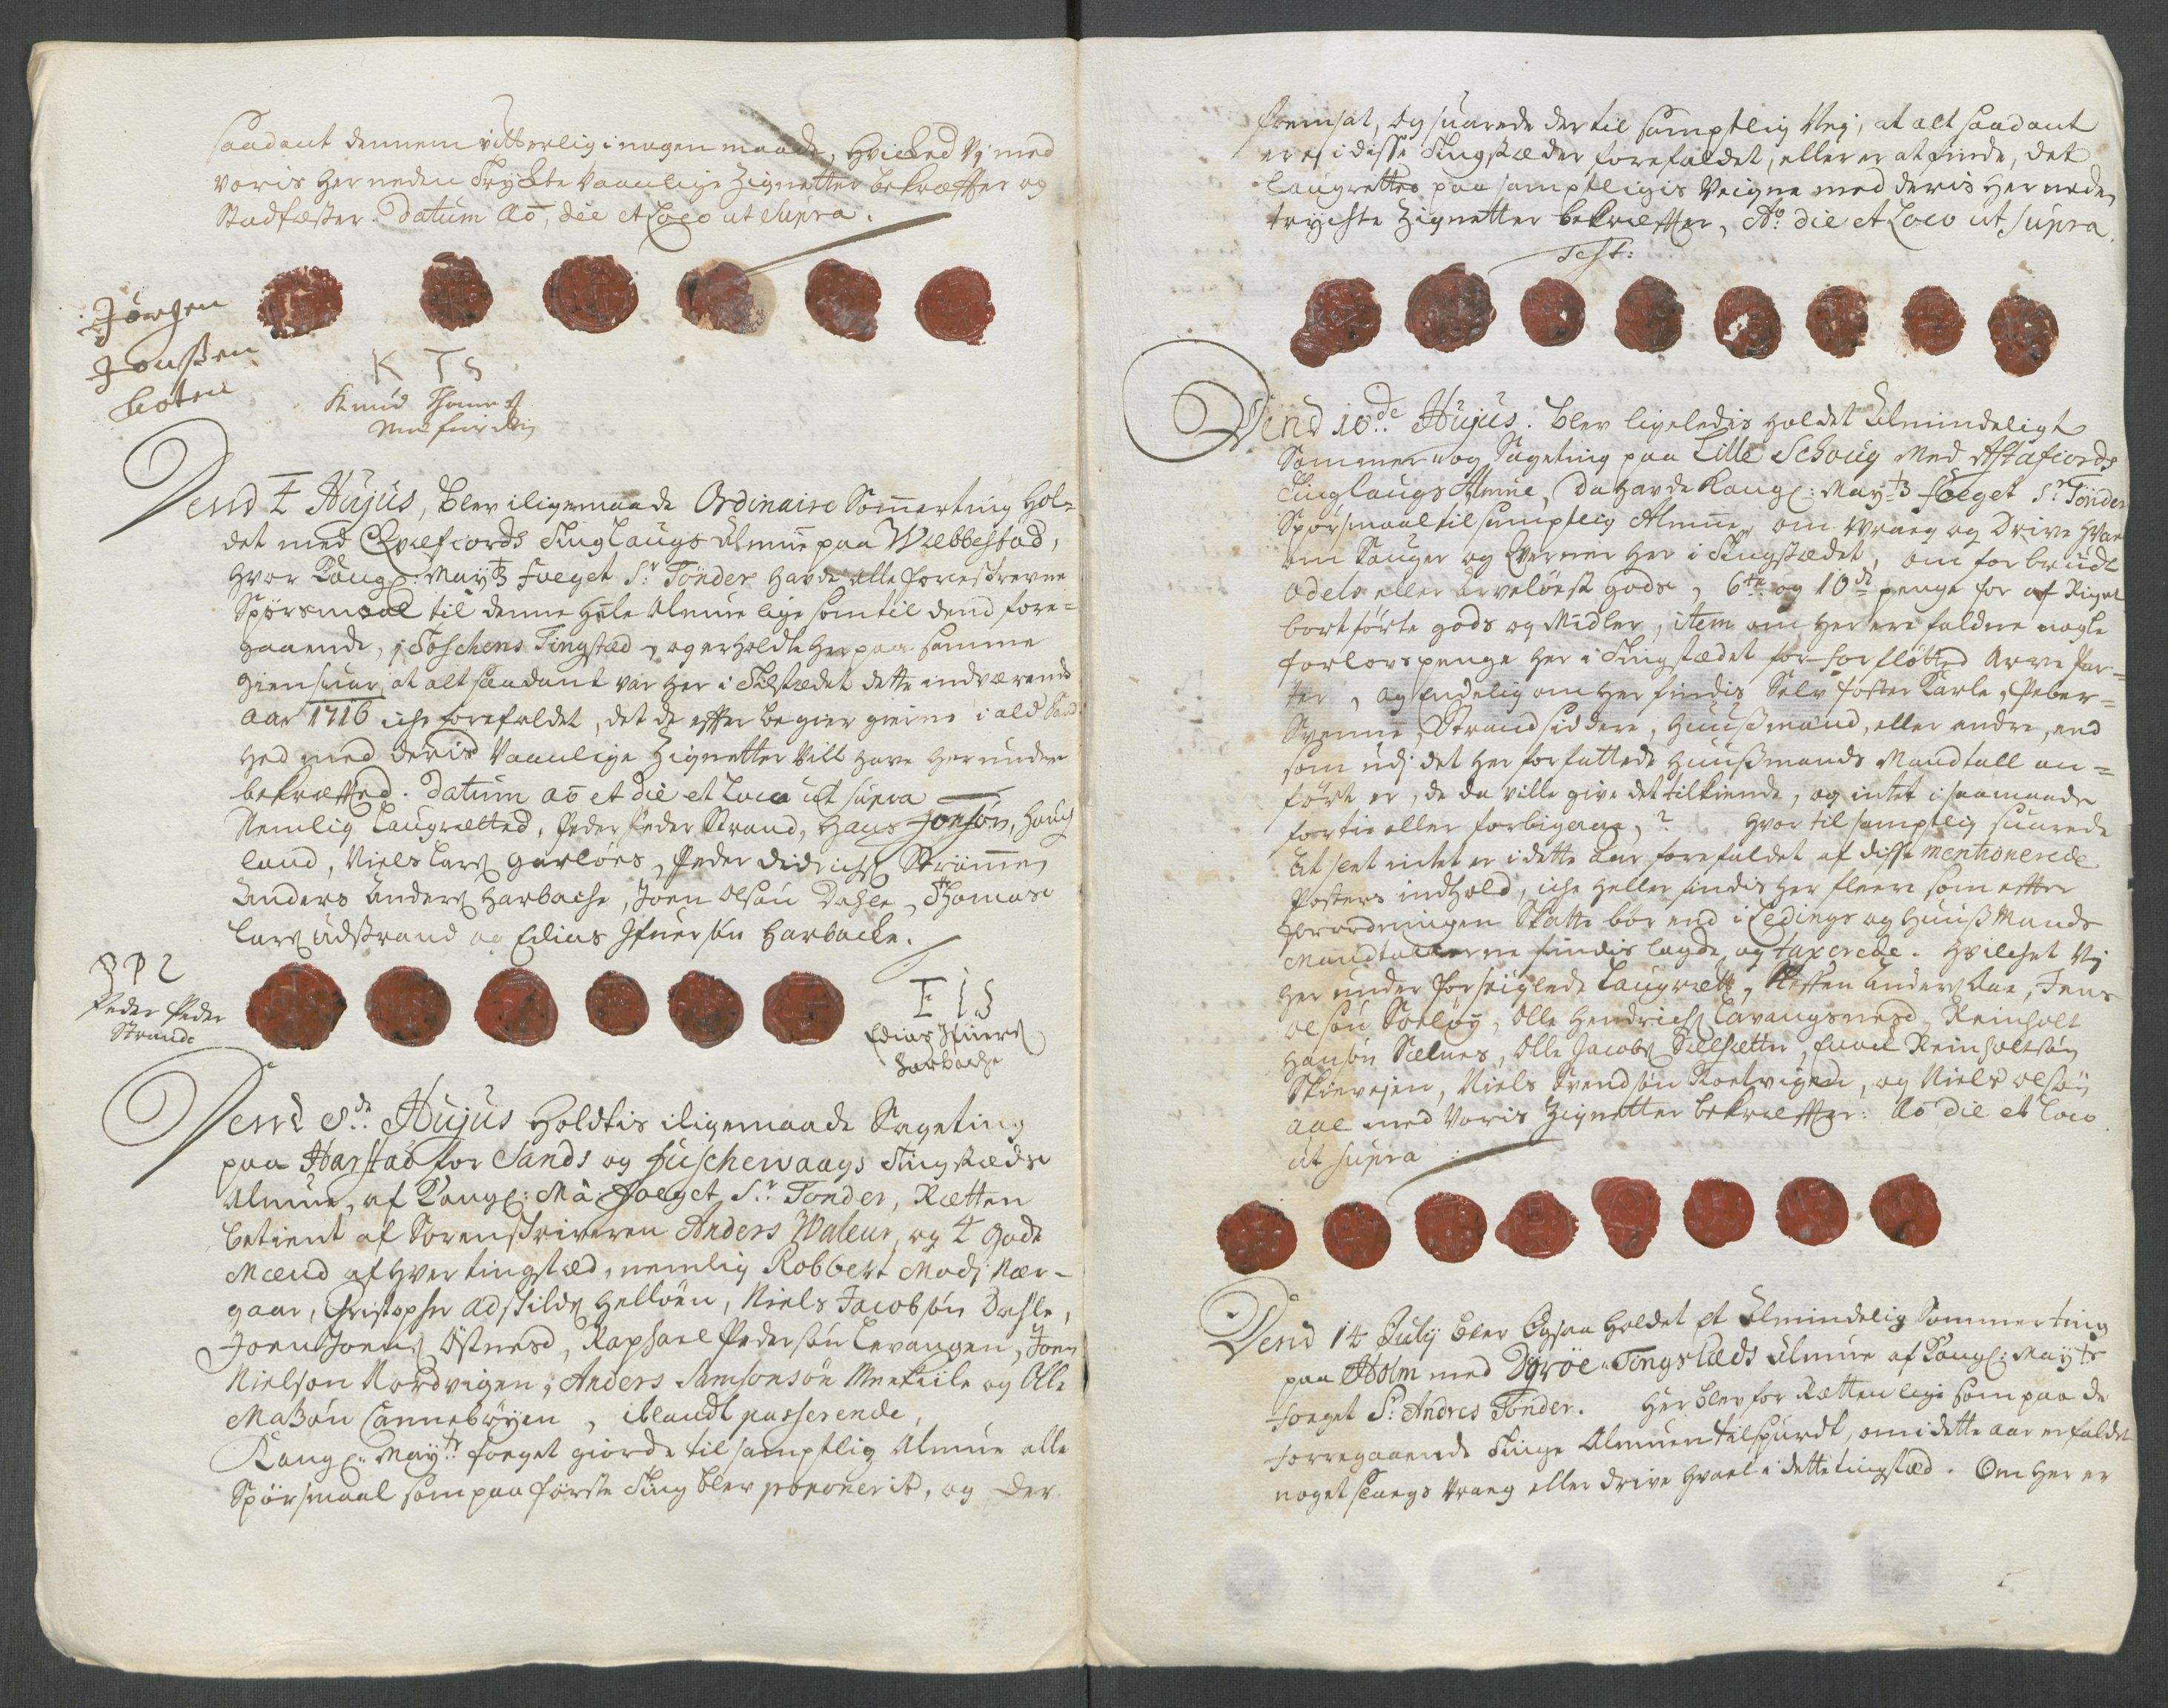 saadant dennem vitterlig i nogen maade, hvicked Vj med
voris her neden Tryckte Vaanlige Zignetter bekræffter og
Stadfæster. Datum Ao, die et Loco ut Supra.
Jørgen
Jonssen
K T S
Knud
Dend 4 Hujus, blev iligemaade Ordinaire Somerting hol=
det med Qvæfiords Tinglaugs Almue paa Wæbbestad,
hvor Kongl: Maytz Foeget Sr Tønder hafde alle foreskrevne
Spørsmaal til denne hele Almue lige som til dend fore=
gaaende, j Toschens Tingstæd, og erholdte her paa samme
giensvar, at alt saadant var her i dette indværende
Aar 1716 iche forefaldet, det de effter begier gierne i ald Sand
hed med deris Vaanlige Zignetter Vill have her under
bekræfted. Datum Ao et die et Loco ut supra
Nemlig Laugretted, Peder Peder Strand, Hans Jonsøn, Houg
land, Niels Lars Garløes, Peder Didrichs Strømme
Anders Anders Harbache, Joen Olsøn Dahle, Thomas
Lars Udstrand og Elias Harbacke.
P P S
Peder Peder
Strand
E I S
Elias
Harbache
Dend 8de Hujus Holdtis iligemaade Sageting
paa Harstad for Sands og Fuschevaags Tingstæds
Almue, af Kongl: Ma: Foeget Sr Tonder, Rætten
betient af Sorenskriveren Anders Waleur, og 4 gode
Mænd af hver tingstæd, nemlig Robbert Mads Nær-
gaar, Christopher Adskilds Helløen, Niels Jacobsøn Dahle,
Joen Joens Østnesd, Raphael Pedersøn Levangen, Joen
Nielsøn Nordvigen, Anders Samsonsøn Meekiile og Olle
Maβøn Cannebøyen, iblandt passerende,
Kongl: Mayts foeget giorde til samptlig Almue alle
Spørsmaal som paa første Ting blev proponerit, og der
fremsat, og suarede der til samptlig Nej, at alt saadant
er ej i disse Tingstæder forefaldet, eller er at finde, det
Laugrettes paa samptligis Veigne med deris her neden
tryckte Zignetter bekræffter, Ao die et Loco ut supra.
Test:
Dend 10de Hujus. blev ligeledis holdet Almindeligt
Sommer og Sageting paa Lille Schoug med Astafiords
Tinglaugs Almue, da hafde Kongl: Maytz Foeget Sr Tønder
Spørsmaal til samptlig Almue, om Wraeg og Drive Hval
om Sauger og her i Tingstædet, om forbrudt
Odels eller Arveløest gods, 6te og 10de penge for af Riget
bortførte gods og Midler, item om her ere faldne nogle
forlovspenge her i Tingstædet for forfløtted Arve par=
ter, og Endelig om her findis Selv foster Karle, Peber=
Svenne, Strandsiddere, Huusmænd, eller andre, end
som udj det her forfattede Huusmands Mandtall an=
ført er, de da ville give det tilkiende, og intet i saamaade
fortie eller forbigaae,? Hvor til samptlig suarede
At slet intet er i dette Aar forefaldet af disse mentionerede
Posters indhold, iche heller findis her fleere som effter
forordningen Skatte bør end i Ledings og Huuss Mands
Mandtallerne findis lagde og taxerede. Hvilchet Vj
her under forseiglede Laugrett, Steffen Anders Aae, Jens
Olsøn Soeløy, Olle Hendrichs Cavangsnesd, Reinholt
Hansøn Sælnes, Olle Jacobs Reinholtsøn
Niels Svendsøn og Niels Olsøn
Aae med Voris Zignetter bekræffter: Ao die et Loco
ut supra
Dend 14 July blev Ogsaa holdet et Almindelig Sommerting
paa Holm med Dyrøe Tingstæds Almue af Kongl: Mayts
Foeget Sr Andres Tønder. Her blev for Rætten lige som paa de
forregaaende Tinge Almuen tilspurdt, om i dette Aar er faldet
noget slaugs Vraeg eller drive hvael i dette tingstæd. Om her er